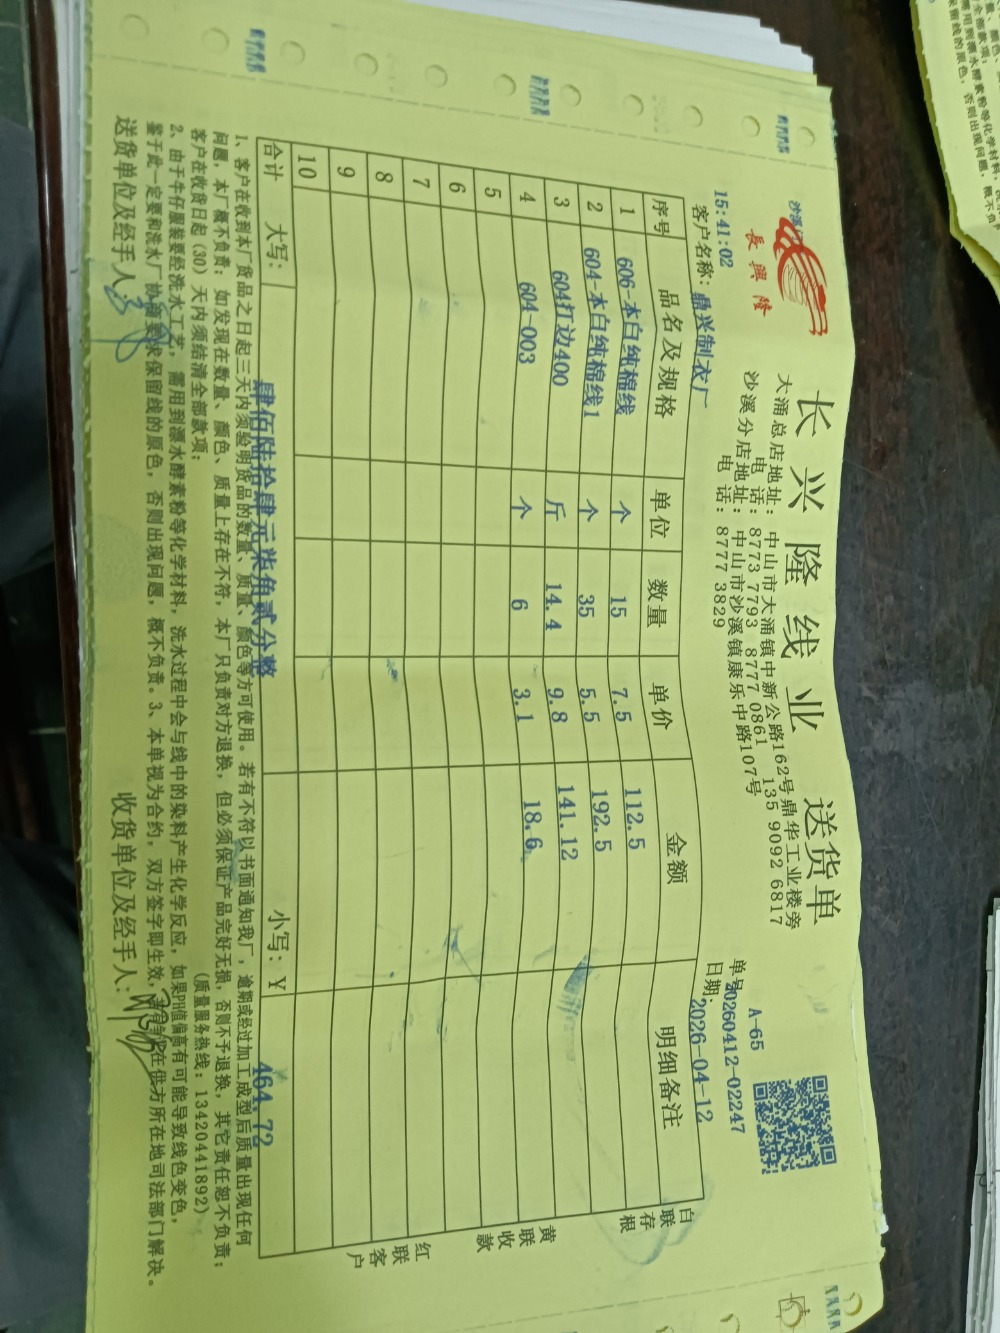 長興隆
长兴隆线业 送货单
大涌总店地址：中山市大涌镇中新公路162号鼎华工业楼旁
电话：8773 7793 8777 0861 135 9092 6817
沙溪分店地址：中山市沙溪镇康乐中路107号
电话：8777 3829
A-65
15:41:02
单号 20260412-02247
客户名称：鼎兴制衣厂
日期：2026-04-12
序号 品名及规格 单位 数量 单价 金额 明细备注
1 606-本白纯棉线 个 15 7.5 112.5
2 604-本白纯棉线1 个 35 5.5 192.5
3 604打边400 斤 14.4 9.8 141.12
4 604-003 个 6 3.1 18.6
5
6
7
8
9
10
合计 大写：肆佰陆拾肆元柒角贰分整 小写：Y 464.72
白联存根
黄联收款
红联客户
1、客户在收到本厂货品之日起三天内须验明货品的数量、质量、颜色等方可使用。若有不符以书面通知我厂，逾期或经过加工成型后质量出现任何
问题，本厂概不负责；如发现在数量、颜色、质量上存在不符，本厂只负责对方退换，但必须保证产品完好无损，否则不予退换，其它责任恕不负责；
客户在收货日起(30)天内须结清全部款项； (质量服务热线：13420441892)
2、由于牛仔服装要经洗水工艺，需用到漂水酵素粉等化学材料，洗水过程中会与线中的染料产生化学反应，如果PH值偏高有可能导致线色变色，
鉴于此一定要和洗水厂协商要求保留线的原色，否则出现问题，概不负责。3、本单视为合约，双方签字即生效，在供方所在地司法部门解决。
送货单位及经手人： 收货单位及经手人：